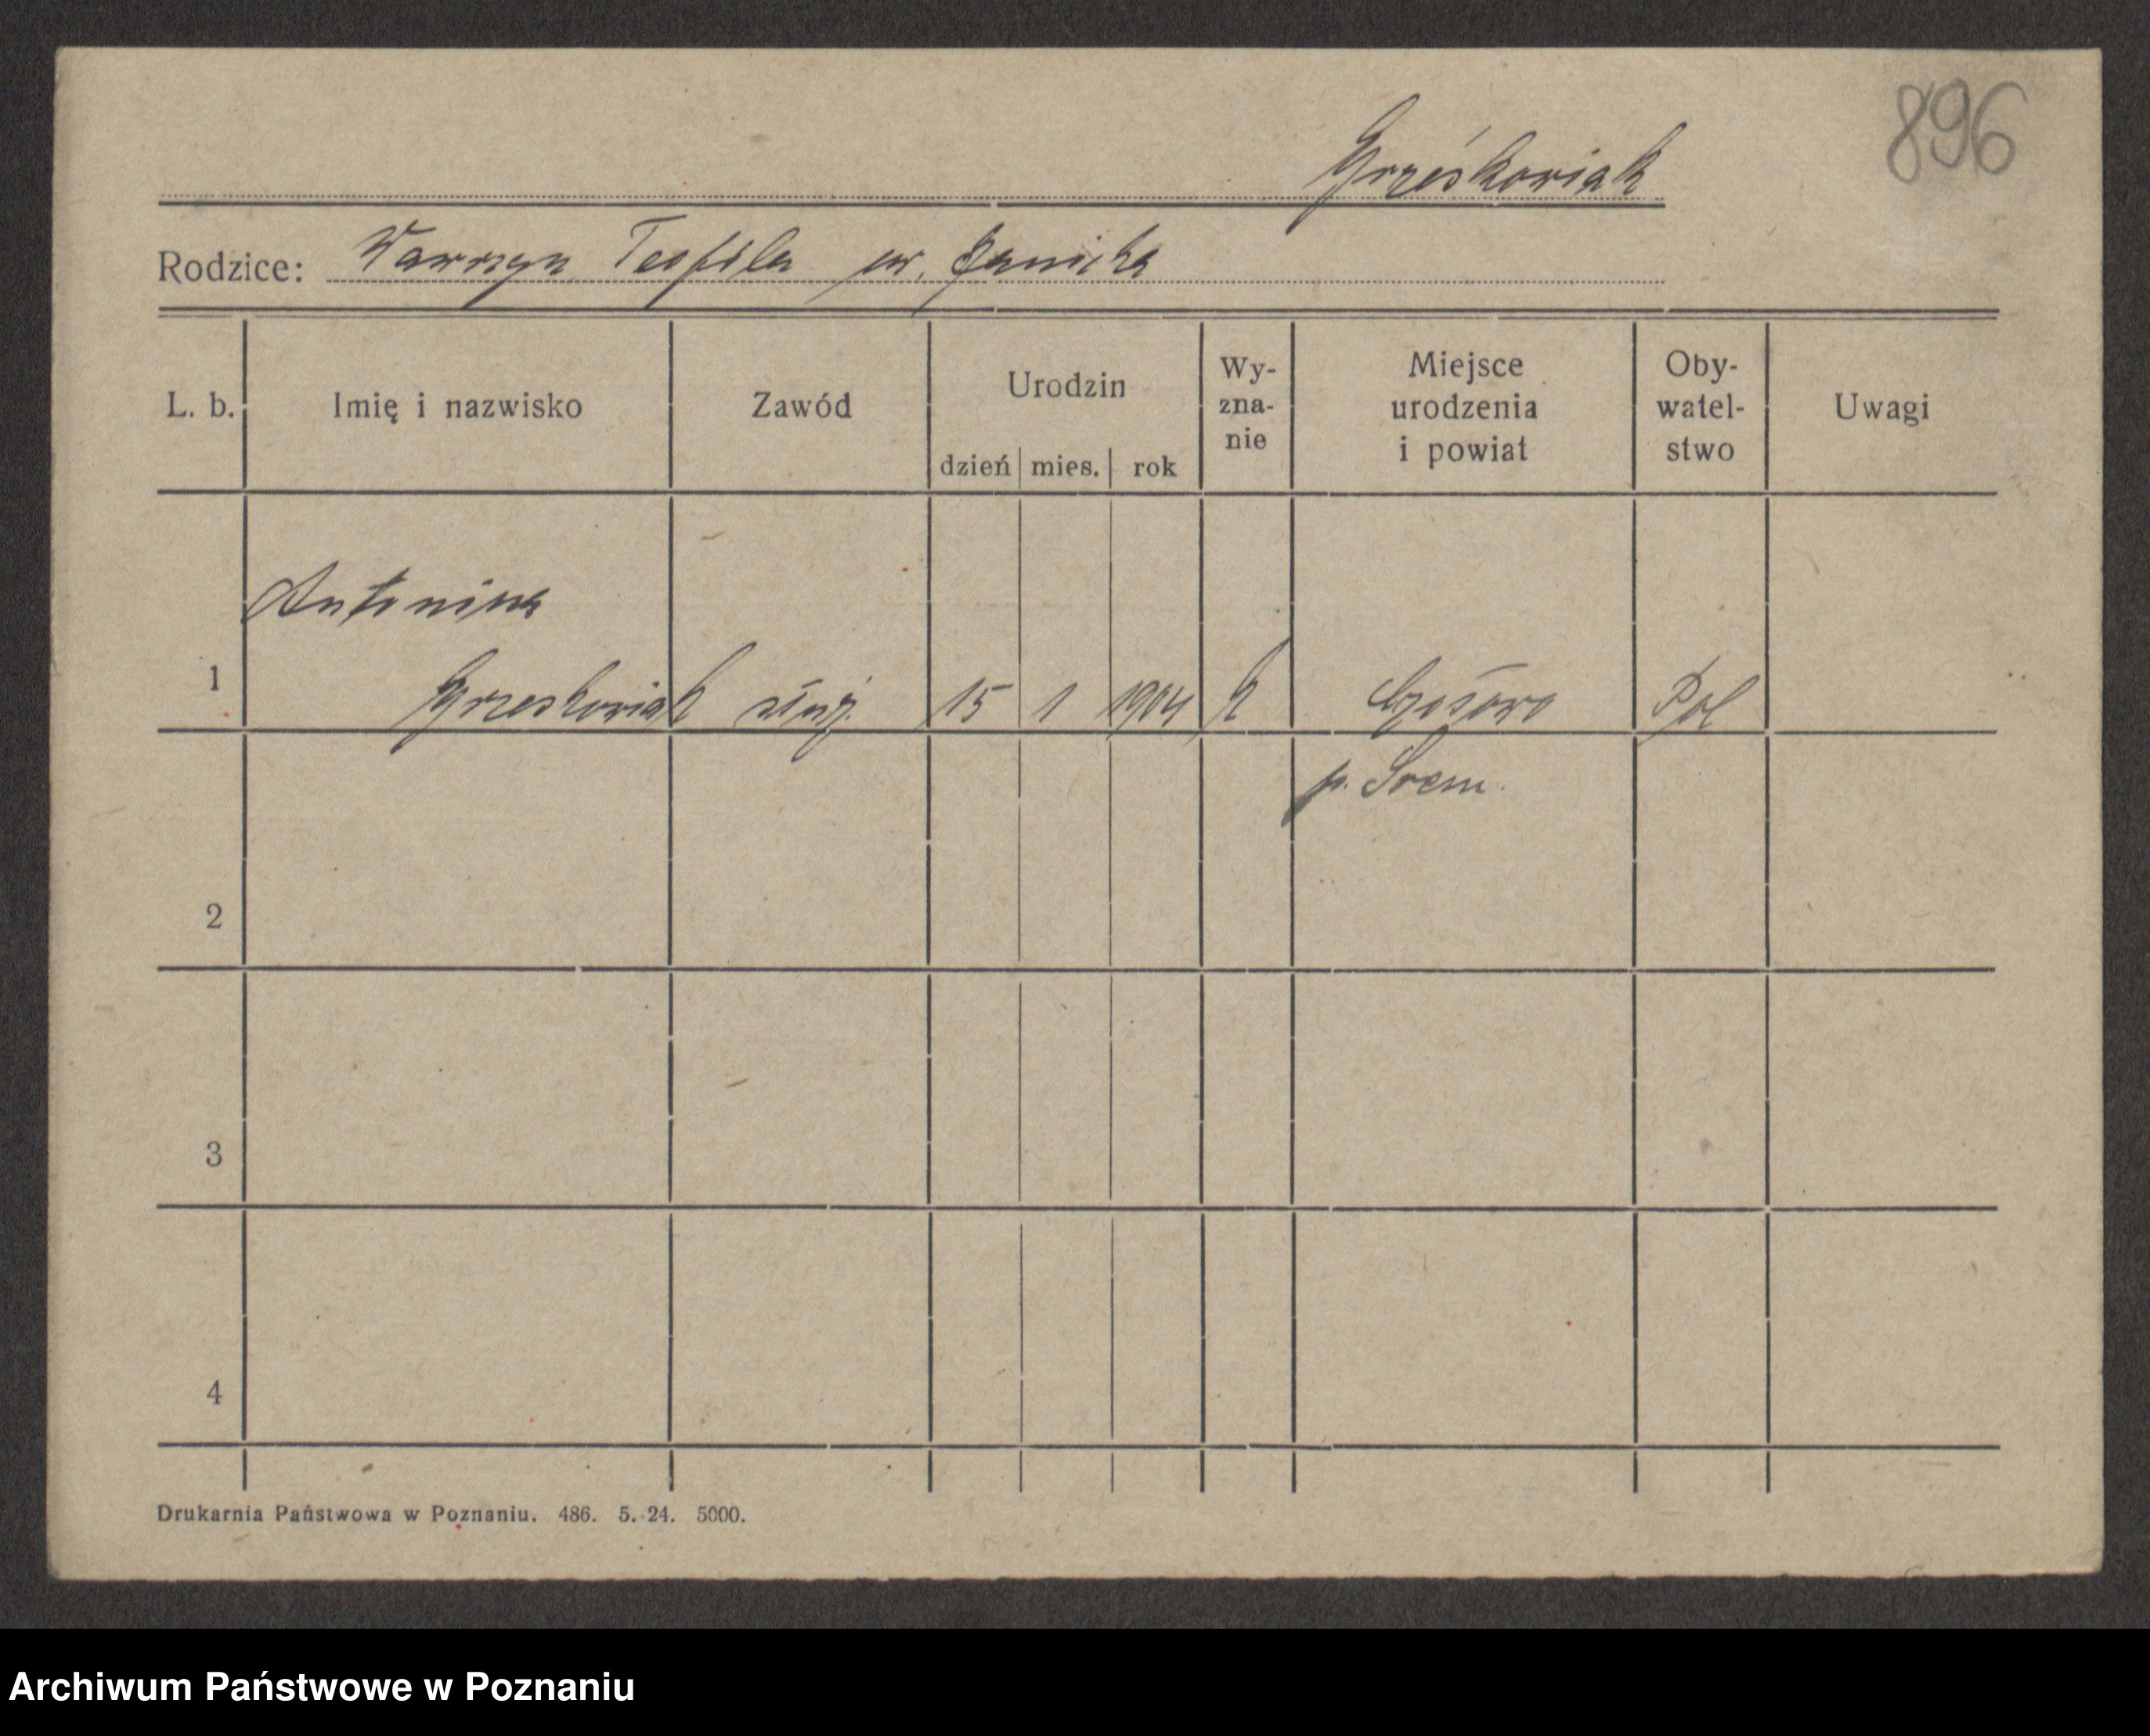 896
Grześkowiak
Rodzice: Wawrzyn Teofila ur. Janicka
L. b. Imię i nazwisko Zawód Urodzin dzień mies. rok Wy-zna-nie Miejsce urodzenia i powiat Oby-watel-stwo Uwagi
Antonina
1 Grzeskowiak służ. 15 1 1904 k Pol
p. Srem.
2
3
4
Drukarnia Państwowa w Poznaniu. 486. 5. 24. 5000.
Archiwum Państwowe w Poznaniu